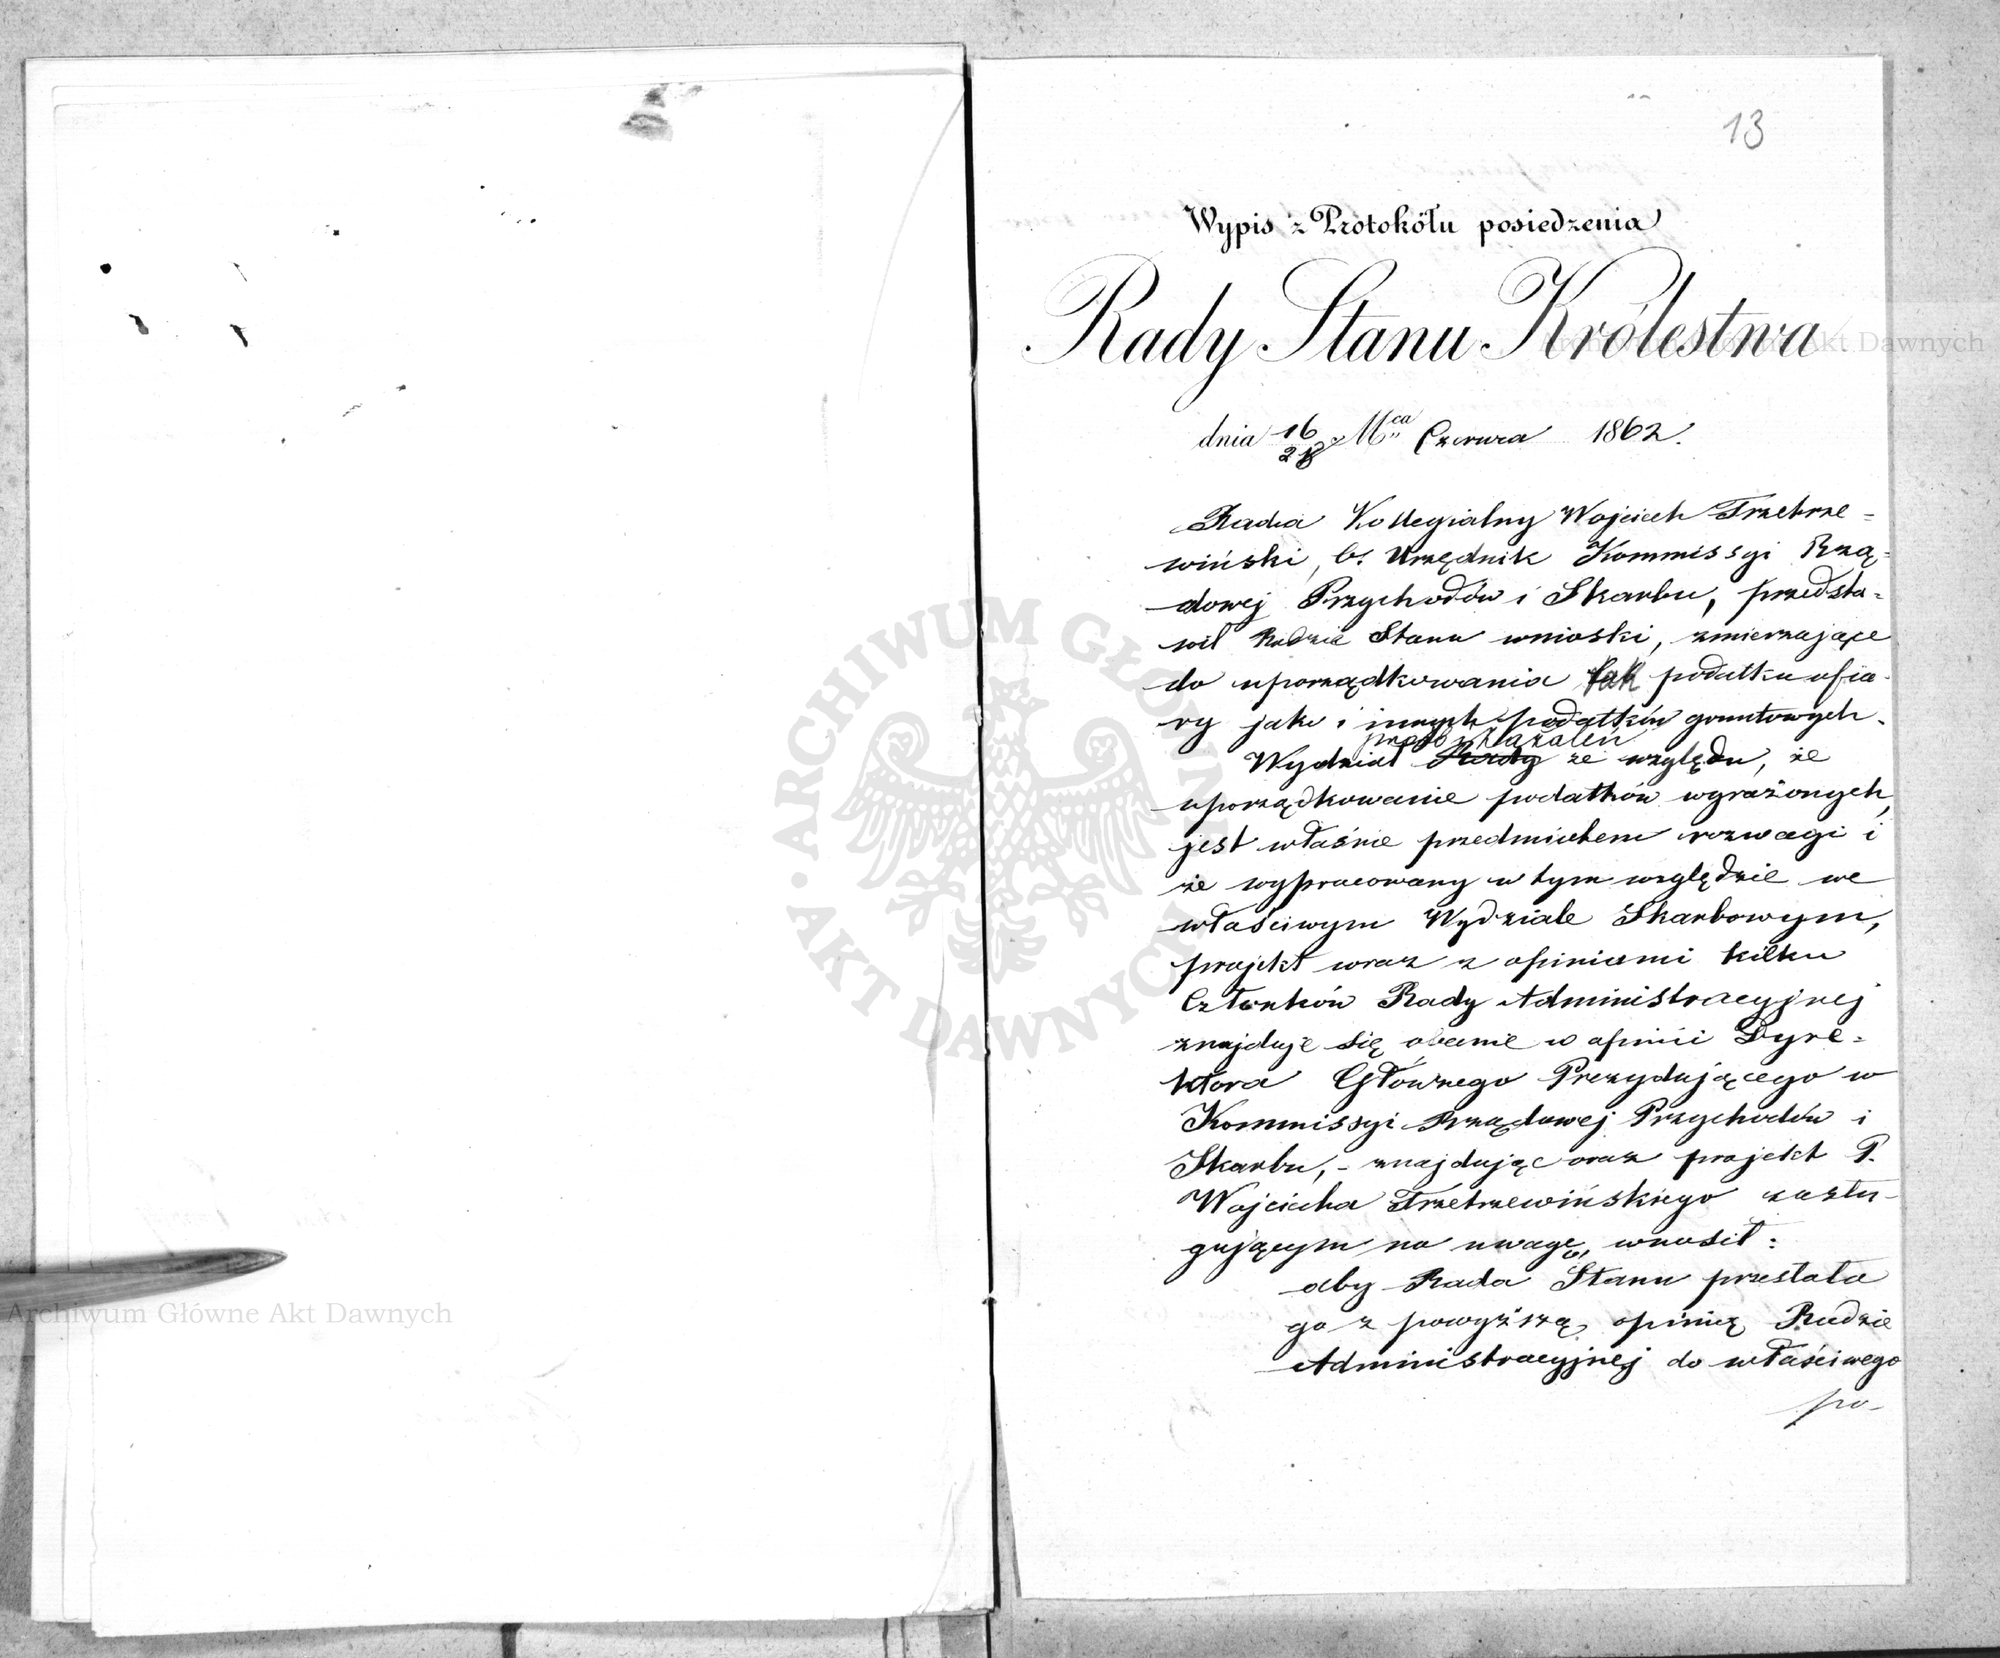 13
Wypis z Protokółu posiedzenia
Rady Stanu Królestwa
dnia 16/28 Mca Czerwca 1862.
Radca Kollegialny Wojciech Trzetrze=
wiński, b. Urzędnik Kommissyi Rzą=
dowej Przychodów i Skarbu, przedsta=
wił Radzie Stanu wnioski, zmierzające
do uporządkowania tak podatku ofia-
ry jako i innych podatków gruntowych.
próśb i zażaleń
Wydział Rady ze względu, że
uporządkowanie podatków wyrażonych,
jest właśnie przedmiotem rozwagi i
że wypracowany w tym względzie we
właściwym Wydziale Skarbowym,
projekt wraz z opiniami kilku
Członków Rady Administracyjnej
znajduje się obecnie w opinii Dyre=
ktora Głównego Prezydującego w
Kommissyi Rządowej Przychodów i
Skarbu, - znajdując oraz projekt P.
Wojciecha Trzetrzewińskiego zasłu-
gującym na uwagę, wnosił:
aby Rada Stanu przesłała
go z powyższą opinią Radzie
Administracyjnej do właściwego
po-
Archiwum Główne Akt Dawnych
ARCHIWUM GŁÓWNE
AKT DAWNYCH
Archiwum Główne Akt Dawnych